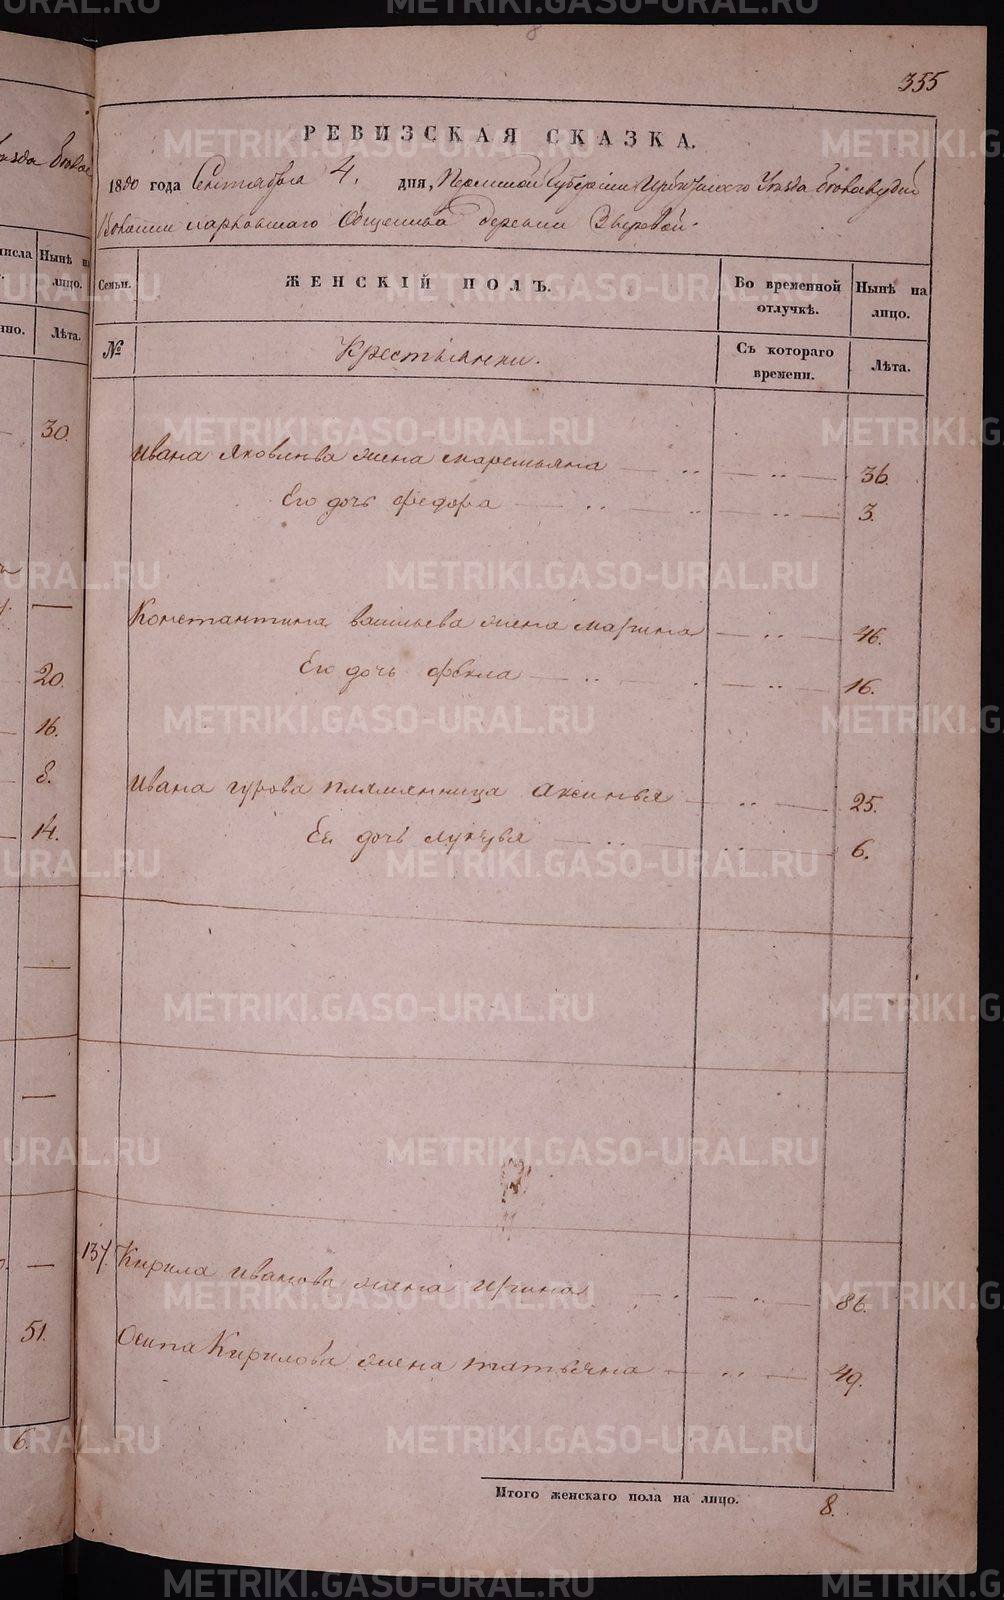 355
РЕВИЗСКАЯ СКАЗКА.
1850 года Сентября 4. дня, Пермской Губерніи Ирбитскаго Уѣзда
Волости Общества деревни Зыревой.
Семьи. ЖЕНСКІЙ ПОЛЪ. Во временной отлучкѣ. Нынѣ на лицо.
№ Крестьянки. Съ котораго времени. Лѣта.
Ивана Яковлева жена Маремьяна 36.
Его дочь Федора 3.
Константина Васильева жена Марина 46.
Его дочь Фекла 16.
Ивана Гурова племянница Аксинья 25.
Ея дочь Лукерья 6.
137. Кирила Иванова жена Ирина 86.
Осипа Кирилова жена Татьяна 49.
Итого женскаго пола на лицо. 8.
уѣзда
числа Нынѣ на лицо.
Лѣта.
30.
20.
16.
8.
14.
51.
6.
METRIKI.GASO-URAL.RU